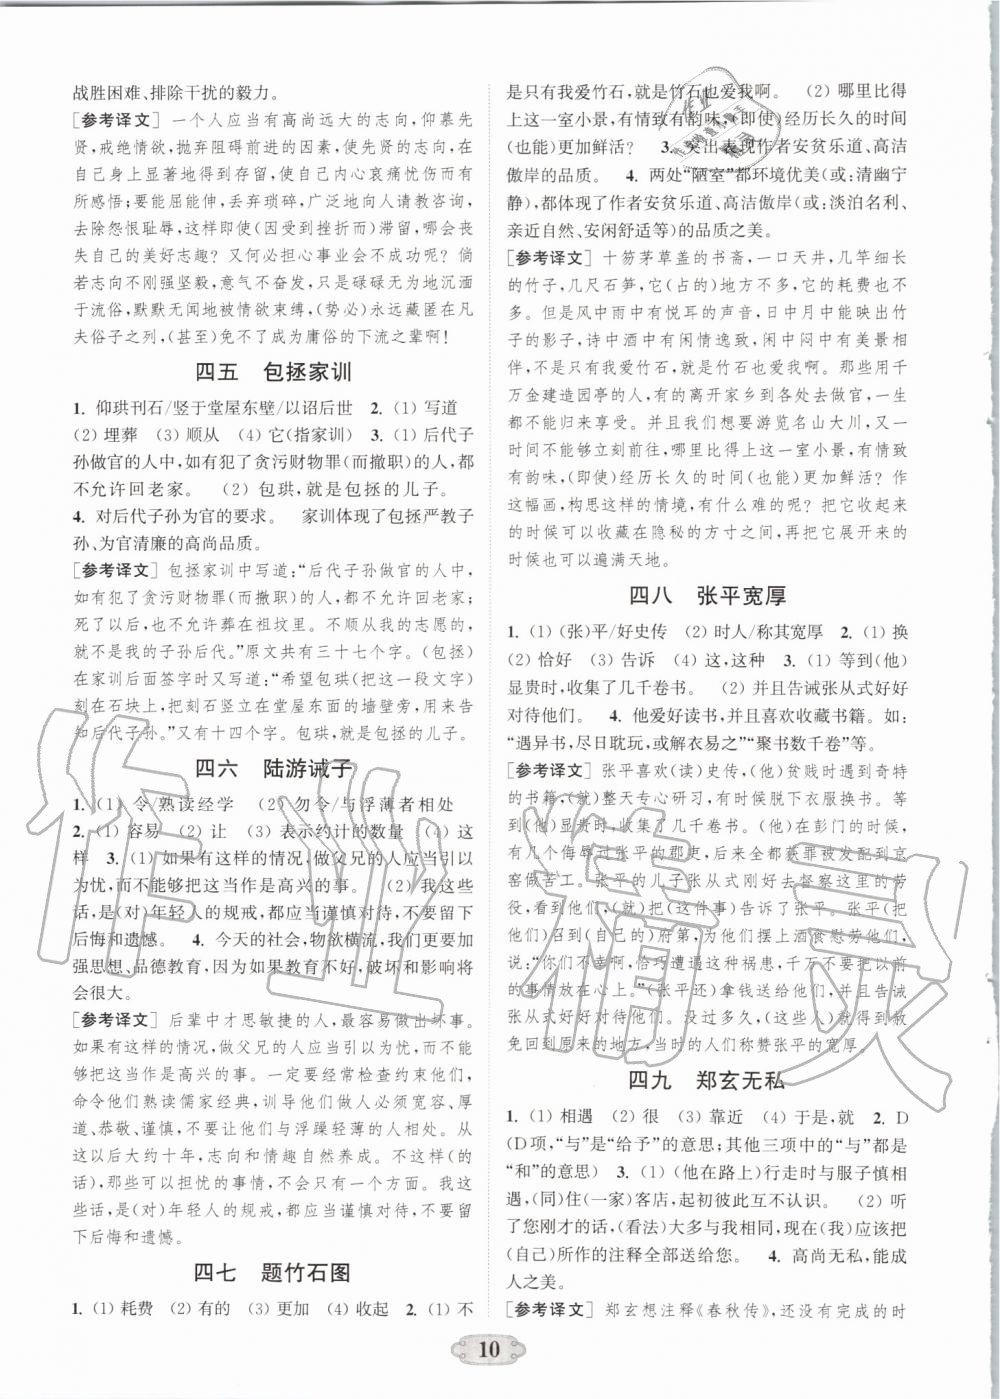 战胜困难、排除干扰的毅力。
[参考译文] 一个人应当有高尚远大的志向，仰慕先
贤，戒绝情欲，抛弃阻碍前进的因素，使先贤的志向，在
在自己身上显著地得到存留，使自己内心哀痛忧伤而有
所领悟；要能屈能伸，丢弃琐碎，广泛地向人请教咨询，
去除怨恨耻辱，这样即使(因受到挫折而)滞留，哪会丧
失自己的美好志趣？又何必担心事业会不成功呢？倘
若志向不刚强坚毅，意气不奋发，只是碌碌无为地沉溺
于流俗，默默无闻地被情欲束缚，(势必)永远藏匿在凡
夫俗子之列，(甚至)免不了成为庸俗的下流之辈啊！
四五 包拯家训
1. 仰珙刊石/竖于堂屋东壁/以诏后世 2. (1) 写道
(2) 埋葬 (3) 顺从 (4) 它(指家训) 3. (1) 后代子
孙做官的人中，如有犯了贪污财物罪(而撤职)的人，都
不允许回老家。 (2) 包珙，就是包拯的儿子。
4. 对后代子孙为官的要求。 家训体现了包拯严教子
孙、为官清廉的高尚品质。
[参考译文] 包拯家训中写道：“后代子孙做官的人中，
如有犯了贪污财物罪(而撤职)的人，都不允许回老家；
死了以后，也不允许葬在祖坟里。不顺从我的志愿的，
就不是我的子孙后代。”原文共有三十七个字。(包拯)
在家训后面签字时又写道：“希望包珙(把这一段文字)
刻在石块上，把刻石竖立在堂屋东面的墙壁旁，用来告
知后代子孙。”又有十四个字。包珙，就是包拯的儿子。
四六 陆游诫子
1. (1) 令/熟读经学 (2) 勿令/与浮薄者相处
2. (1) 容易 (2) 让 (3) 表示约计的数量 (4) 这
样 3. (1) 如果有这样的情况，做父兄的人应当引以
为忧，而不能够把这当作是高兴的事。 (2) 我这些
话，是(对)年轻人的规戒，都应当谨慎对待，不要留下
后悔和遗憾。 4. 今天的社会，物欲横流，我们更要加
强思想、品德教育，因为如果教育不好，破坏和影响将
会很大。
[参考译文] 后辈中才思敏捷的人，最容易做出坏事。
如果有这样的情况，做父兄的人应当引以为忧，而不能
够把这当作是高兴的事。一定要经常检查约束他们，
命令他们熟读儒家经典，训导他们做人必须宽容、厚
道、恭敬、谨慎，不要让他们与浮躁轻薄的人相处。从
这以后大约十年，志向和情趣自然养成。不这样(的
话)，那些可以担忧的事情，不会只有一个。我这
些话，是(对)年轻人的规戒，都应当谨慎对待，不要留
下后悔和遗憾。
四七 题竹石图
1. (1) 耗费 (2) 有的 (3) 更加 (4) 收起 2. (1) 不
是只有我爱竹石，就是竹石也爱我啊。 (2) 哪里比得
上这一室小景，有情致有韵味，(即使)经历长久的时间
(也能)更加鲜活？ 3. 突出表现作者安贫乐道、高洁
傲岸的品质。 4. 两处“陋室”都环境优美(或：清幽宁
静)，都体现了作者安贫乐道、高洁傲岸(或：淡泊名利、
亲近自然、安闲舒适等)的品质之美。
[参考译文] 十笏茅草盖的书斋，一口天井，几竿细长
的竹子，几尺石笋，它(占)的地方不多，它的耗费也不
多。但是风中雨中有悦耳的声音，日中月中能映出竹
的影子，诗中酒中有闲情逸致，闲中闷中有美景相
伴，不只是我爱竹石，就是竹石也爱我啊。那些用千
万金建造园亭的人，有的离开家乡到各处去做官，一生
都不能归来享受。并且我们想要游览名山大川，又一
时不能够立刻前往，哪里比得上这一室小景，有情致
有韵味，(即使)经历长久的时间(也能)更加鲜活？作
这幅画，构思这样的情境，有什么难的呢？把它收起来
的时候可以收藏在隐秘的方寸之间，把它展开来的
时候也可以遍满天地。
四八 张平宽厚
1. (1) (张)平/好史传 (2) 时人/称其宽厚 2. (1) 换
(2) 恰好 (3) 告诉 (4) 这，这种 3. (1) 等到(他)
显贵时，收集了几千卷书。 (2) 并且告诫张从式好好
对待他们。 4. 他爱好读书，并且喜欢收藏书籍。如：
“遇异书，尽日耽玩，或解衣易之”“聚书数千卷”等。
[参考译文] 张平喜欢(读)史传，(他)贫贱时遇到奇特
的书籍，(就)整天专心研习，有时候脱下衣服换书。等
到(他)显贵时，收集了几千卷书。(他)在彭门的时候，
有几个侮辱过张平的郡吏，后来全都获罪被发配到京
窑做苦工。张平的儿子张从式刚好去督察这里的劳
役，看见了他们，把(这件事)告诉了张平。张平(把他
们)召到(自己的)府第，为他们摆上酒食慰劳他们，
说：“你们不幸啊，恰巧遭遇这种祸患，千万不要把以前
的事情放在心上。”(张平还)拿钱送给他们，并且告诫
张从式好好对待他们。没过多久，(这些人)就得到赦
免回到原来的地方，当时的人们称赞张平的宽厚。
四九 郑玄无私
1. (1) 相遇 (2) 很 (3) 靠近 (4) 于是，就 2. D
(D项，“与”是“给予”的意思；其他三项中的“与”都是
“和”的意思) 3. (1) (他在路上)行走时与服子慎相
遇，(同)住(一家)客店，起初彼此互不认识。 (2) 听
了您刚才的话，(看法)大多与我相同，现在(我)应该把
(自己)所作的注释全部送给您。 4. 高尚无私，能成
人之美。
[参考译文] 郑玄想注释《春秋传》，还没有完成的时
10
作业精灵